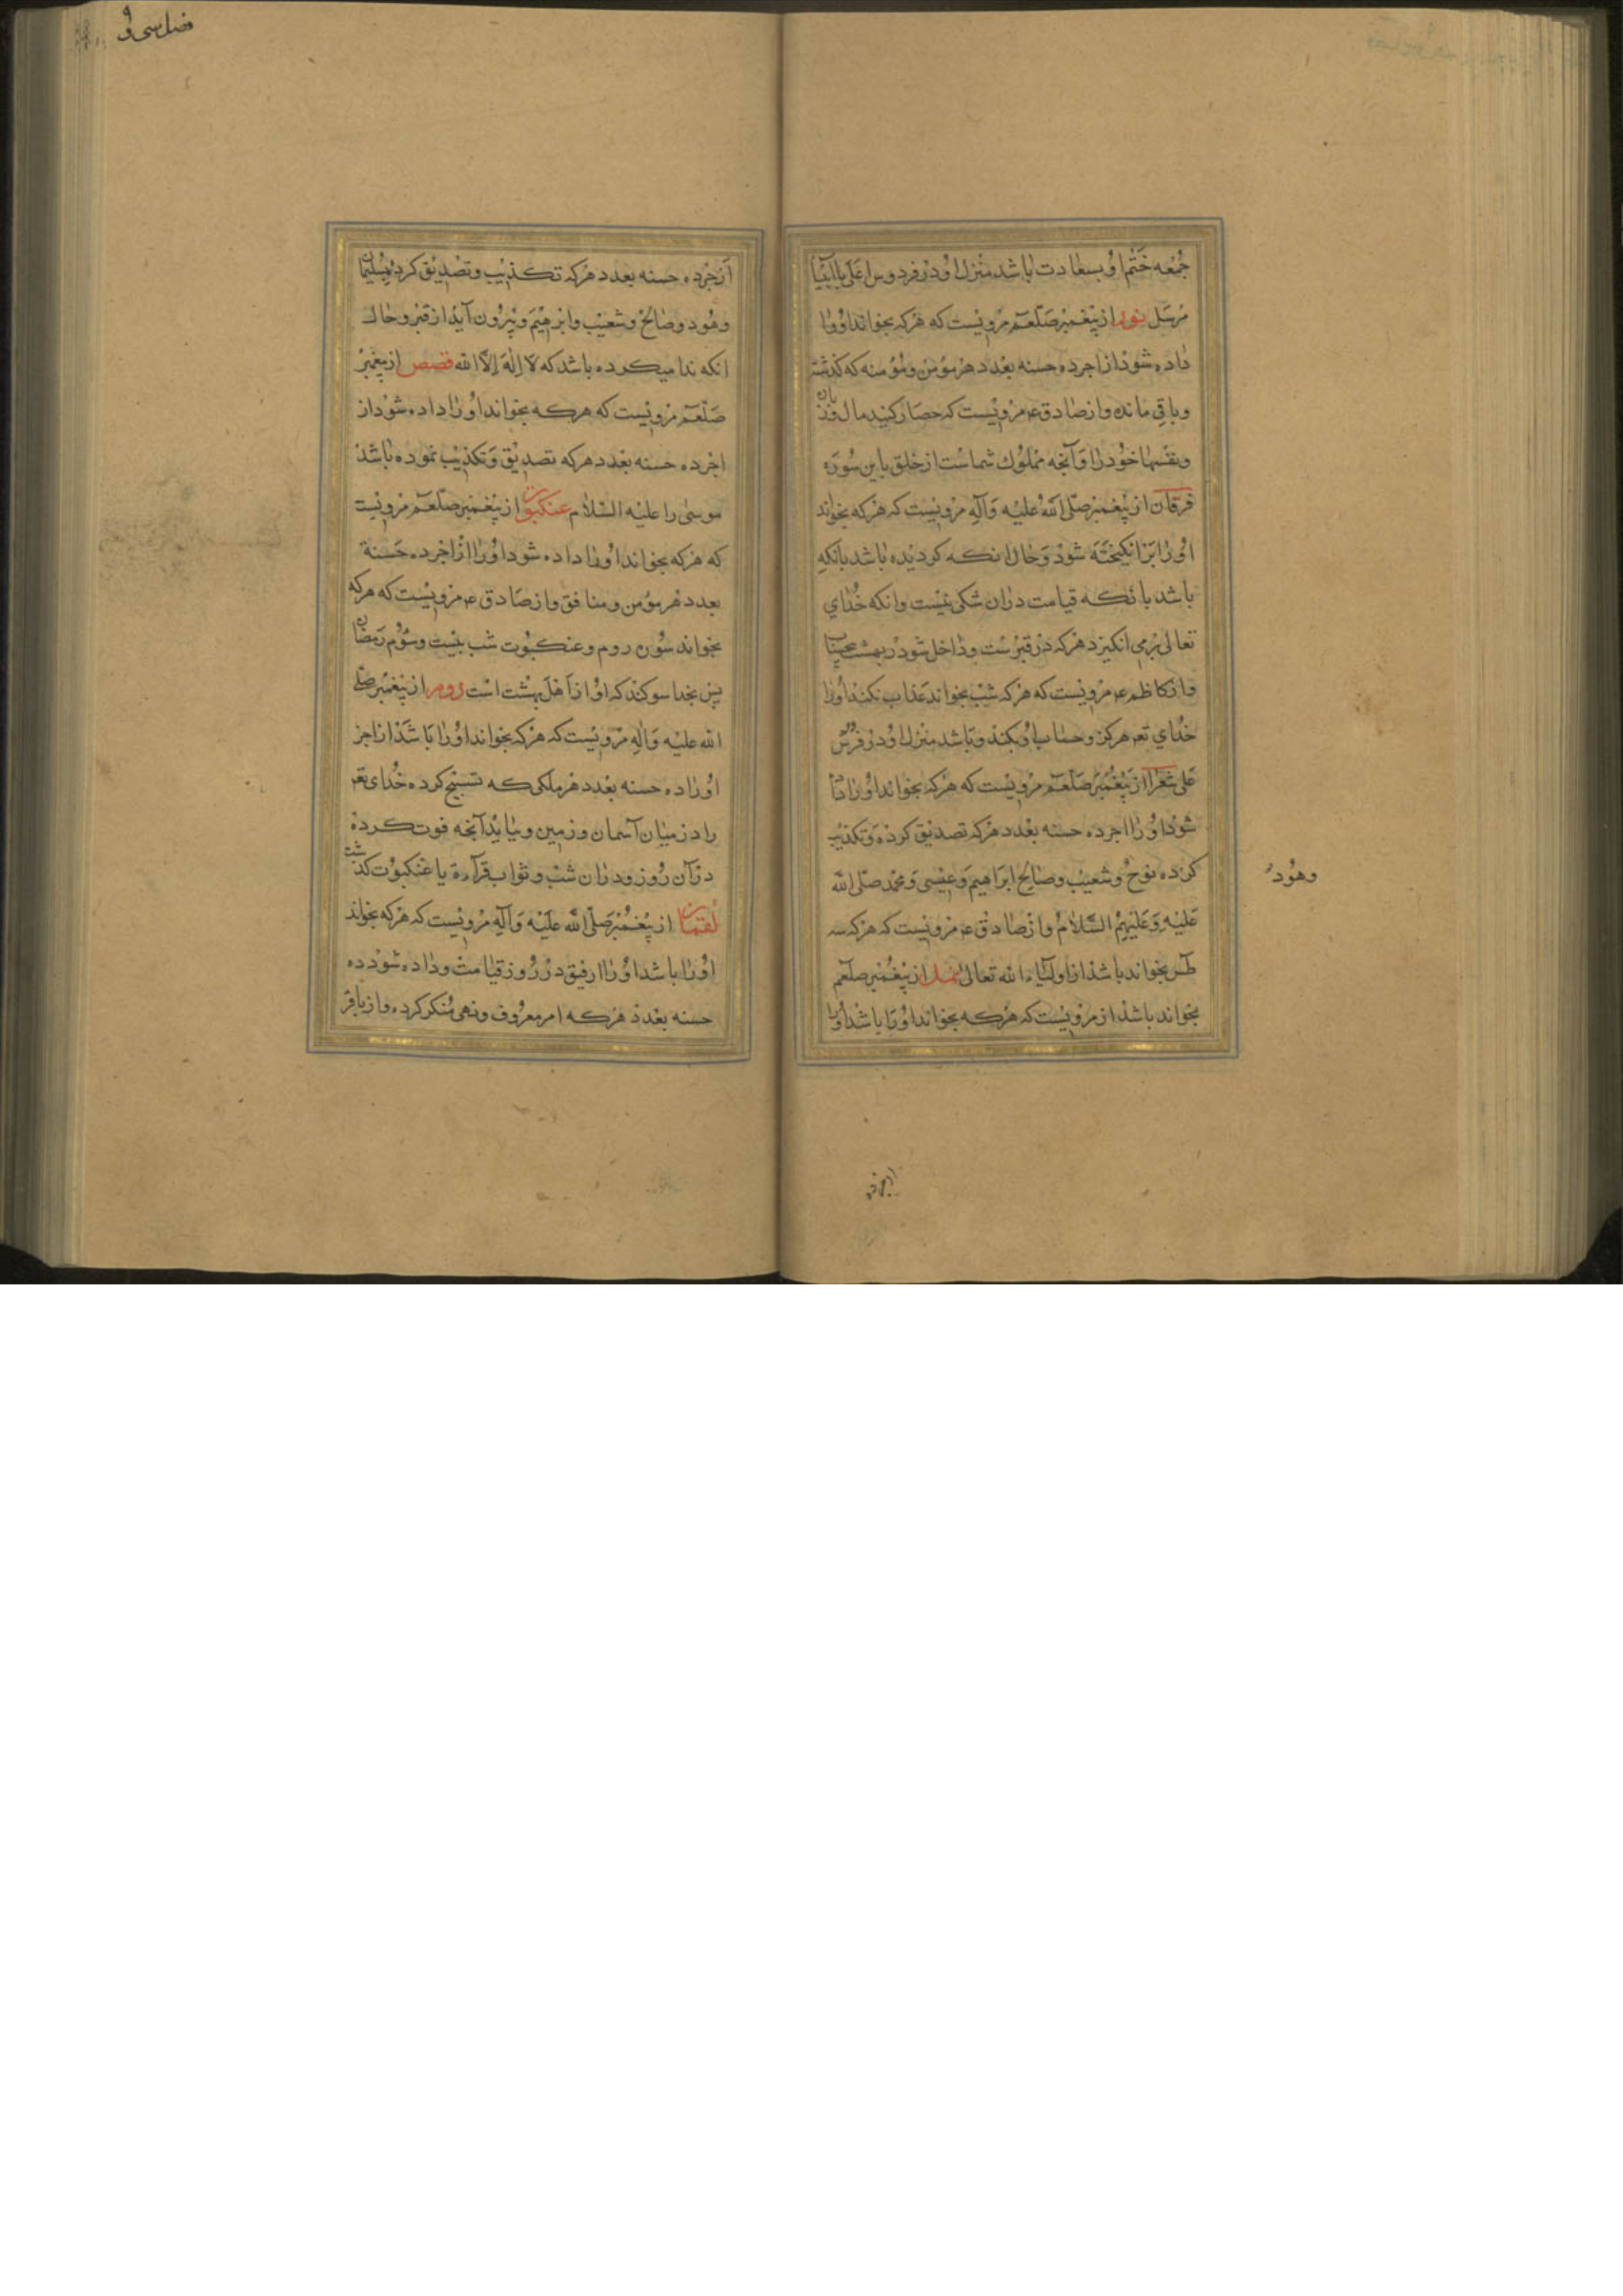 جمعه ختم او بسعادت باشد منزل او در فردوس اعلی با انبیا
مرسل نور از پیغمبر صلعم مرویست که هرکه بخواند او را
داده شود از اجر ده حسنه بعدد هر مؤمن و مؤمنه که گذشته
و باقی مانده و از صادق ع مرویست که حصار کنید مال
و نفسها خود را و آنچه مملوک شماست از خلق باین سوره
فرقان از پیغمبر صلی الله علیه وآله مرویست که هرکه بخواند
او را برانکیخته شود و حال انکه کردیده باشد بانکه
باشد بانکه قیامت دران شکی نیست وانکه خدای
تعالی برمی انکیزد هرکه در قبرست و داخل شود در بهشت بیحساب
و از کاظم ع مرویست که هرکه شب بخواند عذاب نکند او را
خدای تع هرکز و حساب او نکند و باشد منزل او در فردوس
علی شعرا از پیغمبر صلعم مرویست که هرکه بخواند او را داده
شود او را اجر ده حسنه بعدد هرکه تصدیق کرده و تکذیب
کرده نوح و شعیب و صالح ابراهیم و عیسی و محمد صلی الله
وهود
علیه و علیهم السلام و از صادق ع مرویست که هرکه سه
طس بخواند باشد از اولیاء الله تعالی نمل از پیغمبر صلعم
بخواند باشد از مرویست که هرکه بخواند او را باشد او را
از اجر ده
فضل سی و
از جر ده حسنه بعدد هرکه تکذیب و تصدیق کرده سلیمان
وهود وصالح وشعیب وابرهیم و بیرون آید از قبر و حال
انکه ندا میکرده باشد که لا اله الا الله قصص از پیغمبر
صلعم مرویست که هرکه بخواند او را داده شود از
اجر ده حسنه بعدد هرکه تصدیق و تکذیب نموده باشد
موسی را علیه السلام عنکبوت از پیغمبر صلعم مرویست
که هرکه بخواند او را داده شود او را از اجر ده حسنة
بعدد هر مومن و منافق و از صادق ع مرویست که هرکه
بخواند سوره روم و عنکبوت شب بیست وسوم رمضان
پس بخدا سوکند که او از اهل بهشت است روم از پیغمبر صلی
الله علیه وآله مرویست که هرکه بخواند او را باشد از اجر
او را ده حسنه بعدد هر ملکی که تسبیح کرده خدای تع
را در میان آسمان و زمین و بیاید آنچه فوت کرده
در آن روز و دران شب و ثواب قرآءة با عنکبوت گذشت
لقمان از پیغمبر صلی الله علیه وآله مرویست که هرکه بخواند
او را باشد او را رفیق در روز قیامت و داده شود ده
حسنه بعدد هرکه امر معروف و نهی منکر کرده و از باقر